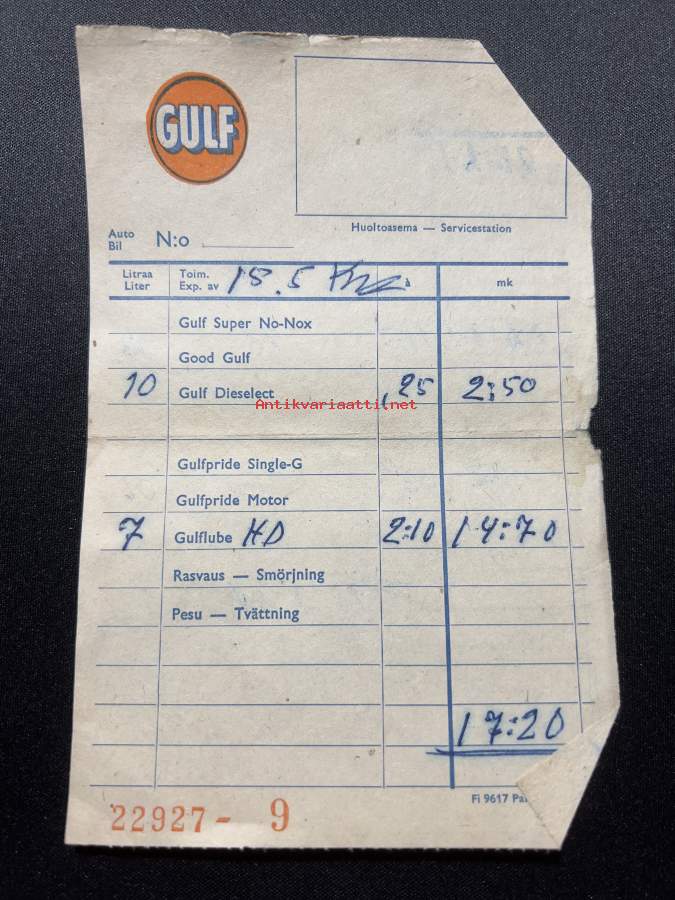 GULF
Huoltoasema — Servicestation
Auto
Bil
N:o
Litraa
Liter
Toim.
Exp. av
15.5
à
mk
Gulf Super No-Nox
Good Gulf
10 Gulf Dieselect ,25 2:50
Antikvariaatti.net
Gulfpride Single-G
Gulfpride Motor
7 Gulflube HD 2:10 14:70
Rasvaus — Smörjning
Pesu — Tvättning
17:20
Fi 9617
22927 - 9